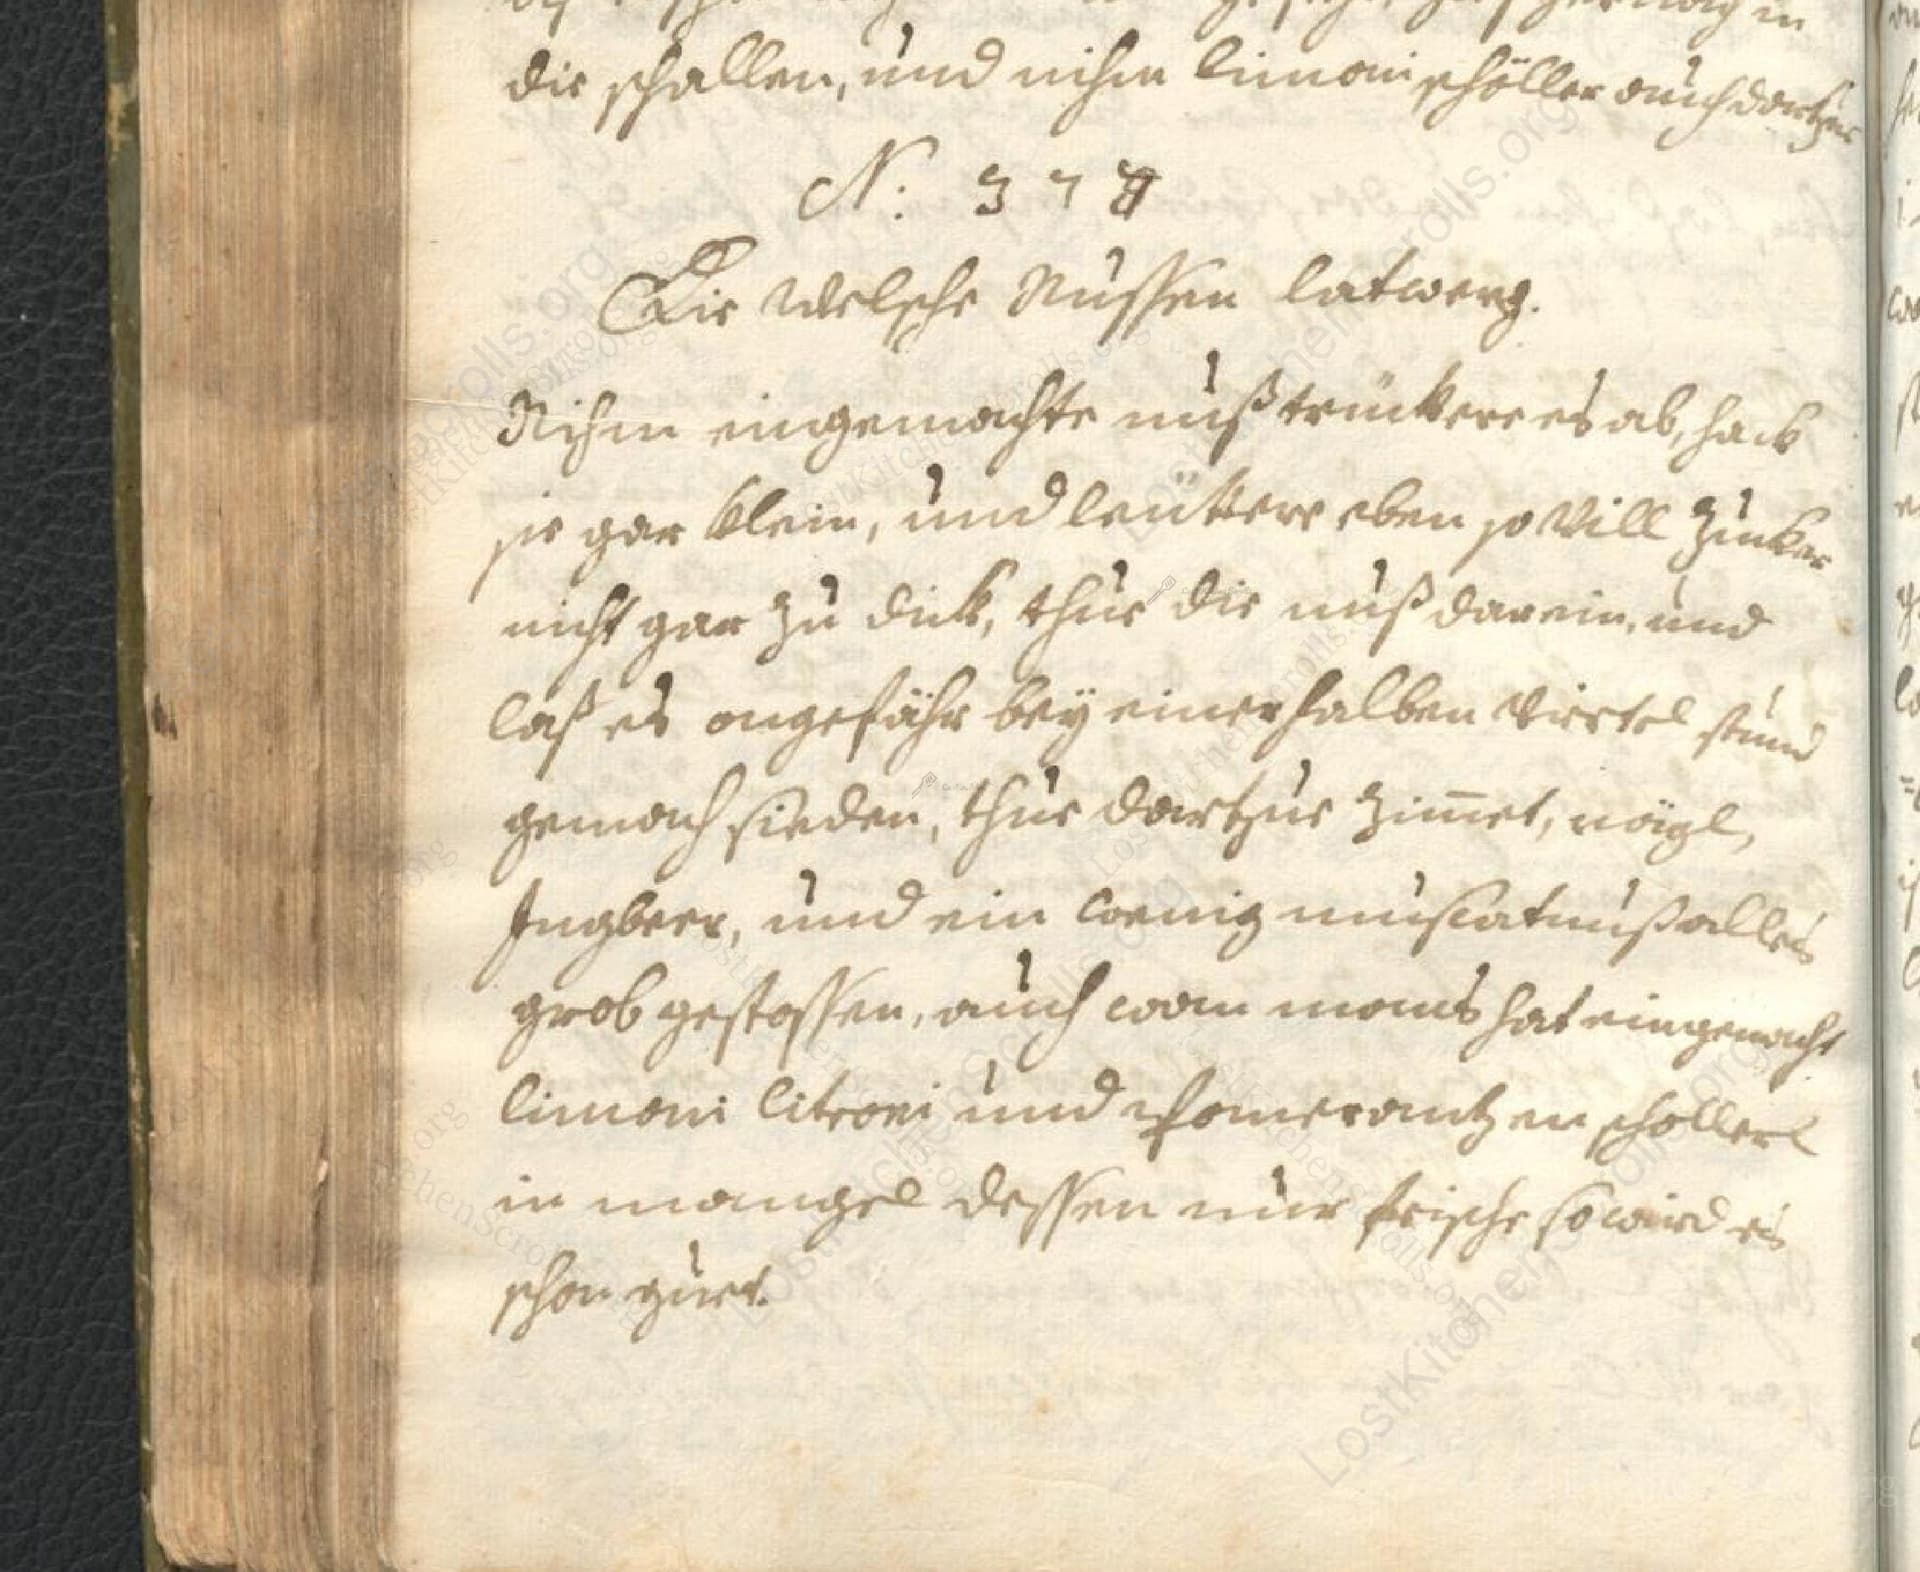 die schallen, und nihm limoni schöller auch dartzue
N: 378
Die Welsche Nussen latwerg.
Nihm eingemachte nuß trückere es ab, hack
sie gar klein, und leüttere eben so Vill Zucker
nicht gar zu dick, thue die nuß darein, und
laß es ongefähr bey einer halben Viertel stund
gemach sieden, thue dartzue Zimmet, nägl,
Ingber, und ein wenig muscatnuß alles
grob gestossen, auch wan mans hat eingemacht
limoni Citroni und Pomerantzen schollerl
in mangel dessen nur frische so wird es
schon guet.